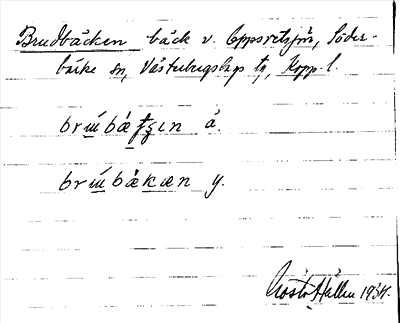 Brudbäcken bäck v. Uppsvetsjön, Söder-
bärke sn, Västerbergslags tg, Kopp. l.
brɯ́bæ̀tʂın ä.
brɯ́bækæn y.
Gösta Hallén 1934.